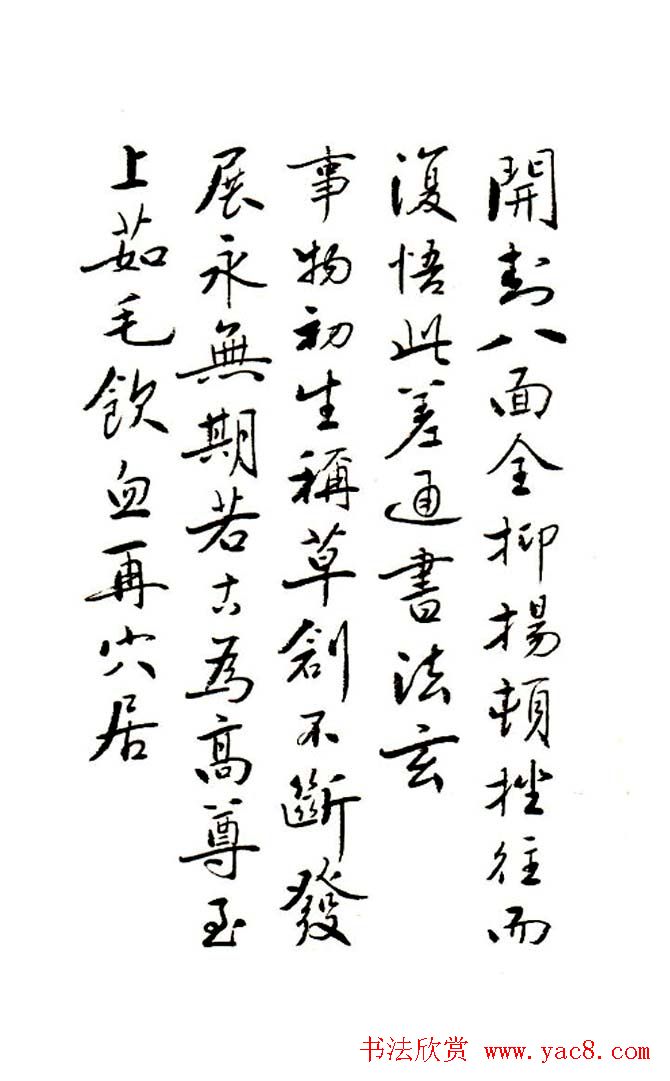 開封八面全抑揚頓挫往而
復悟此差通書法玄
事物初生稱草創不斷發
展永無期若古為高尊至
上茹毛飲血再穴居
书法欣赏 www.yac8.com